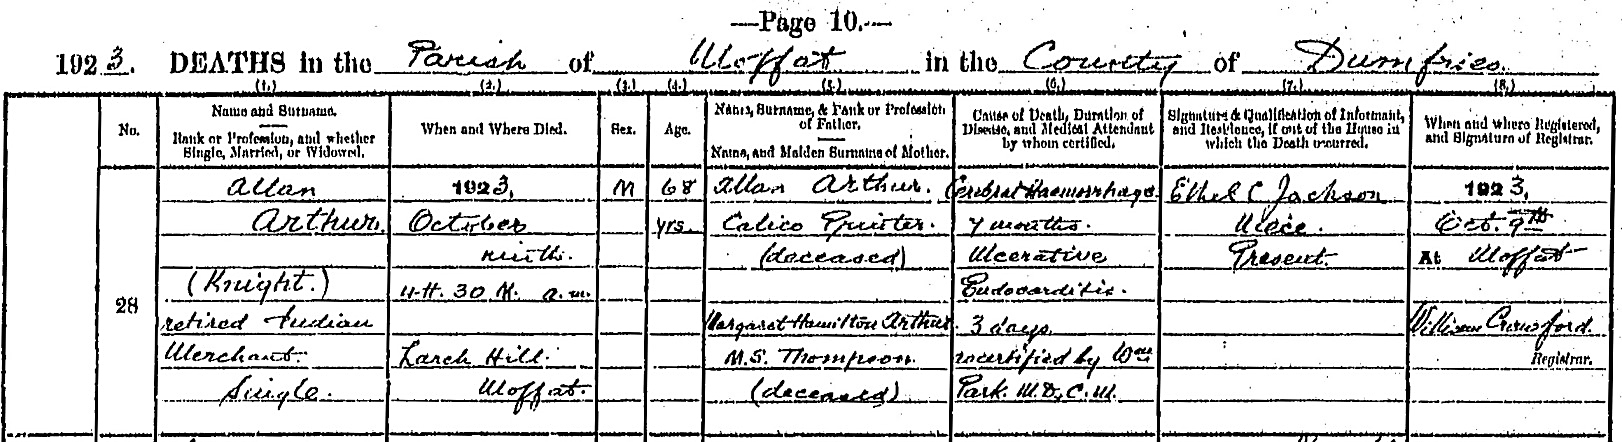 —Page 10.—
1923. DEATHS in the Parish of Moffat in the County of Dumfries.
(1.) (2.) (3.) (4.) (5.) (6.) (7.) (8.)
No.
Name and Surname.
Rank or Profession, and whether
Single, Married, or Widowed.
When and Where Died.
Sex.
Age.
Name, Surname, & Rank or Profession
of Father.
Name, and Maiden Surname of Mother.
Cause of Death, Duration of
Disease, and Medical Attendant
by whom certified.
Signature & Qualification of Informant,
and Residence, if out of the House in
which the Death occurred.
When and where Registered,
and Signature of Registrar.
28
Allan
Arthur.
(Knight.)
retired Indian
Merchant.
Single.
1923,
October
ninth.
4 H. 30 M. a.m.
Larch Hill.
Moffat.
M
68
yrs.
Allan Arthur.
Calico Printer.
(deceased)
Margaret Hamilton Arthur
M.S. Thompson.
(deceased)
Cerebral Haemorrhage
7 months.
Ulcerative
Endocarditis.
3 days.
As certified by Wm
Park. M.D., C.M.
Ethel C Jackson
Niece.
Present.
1923,
Oct. 9th
At Moffat
William Crawford.
Registrar.